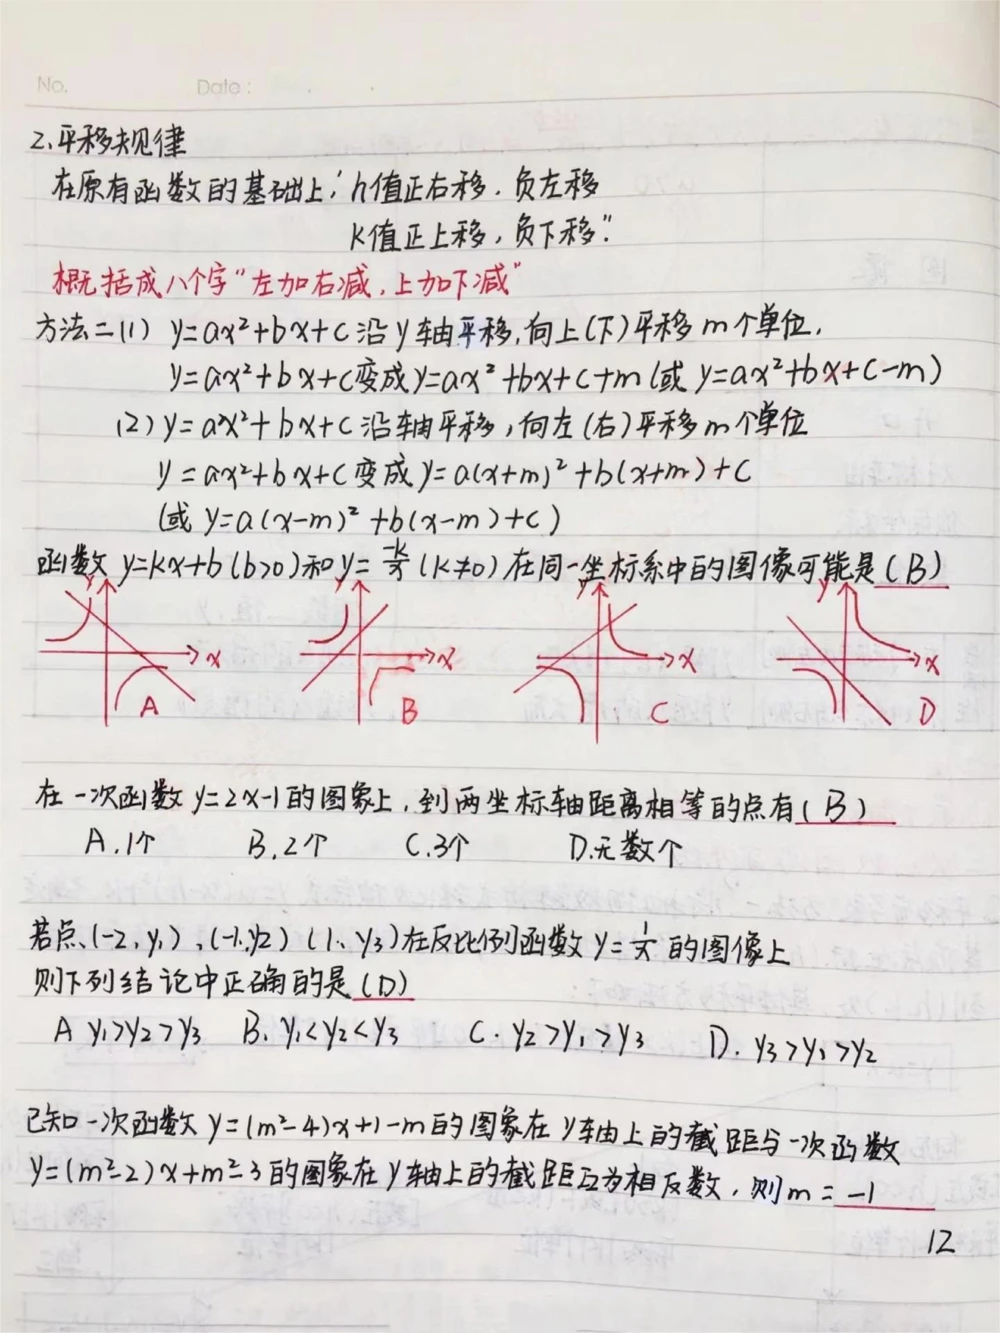 No. Date:
2、平移规律
在原有函数的基础上,"h值正右移.负左移
K值正上移,负下移".
概括成八个字"左加右减,上加下减"
方法二(1) y=ax²+bx+c沿y轴平移,向上(下)平移m个单位.
y=ax²+bx+c变成y=ax²+bx+c+m(或 y=ax²+bx+c-m)
(2) y=ax²+bx+c沿轴平移,向左(右)平移m个单位
y=ax²+bx+c变成y=a(x+m)²+b(x+m)+c
(或 y=a(x-m)²+b(x-m)+c)
函数 y=kx+b(b>0)和y=k/x(k≠0)在同一坐标系中的图像可能是(B)
y y y y
x x x x
A B C D
在一次函数y=2x-1的图象上,到两坐标轴距离相等的点有(B)
A.1个 B.2个 C.3个 D.无数个
若点、(-2,y₁)、(-1,y2) (1、y₃)在反比例函数y=1/x的图像上
则下列结论中正确的是(D)
A y₁>y₂>y₃ B.y₁<y₂<y₃ C.y₂>y₁>y₃ D.y₃>y₁>y₂
已知一次函数y=(m²-4)x+1-m的图象在y轴上的截距与一次函数
y=(m²-2)x+m²-3的图象在y轴上的截距互为相反数,则m=-1
12